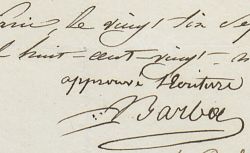 Paris le vingt six Se
huit-cent-vingt-
approuvé l'écriture
Barba